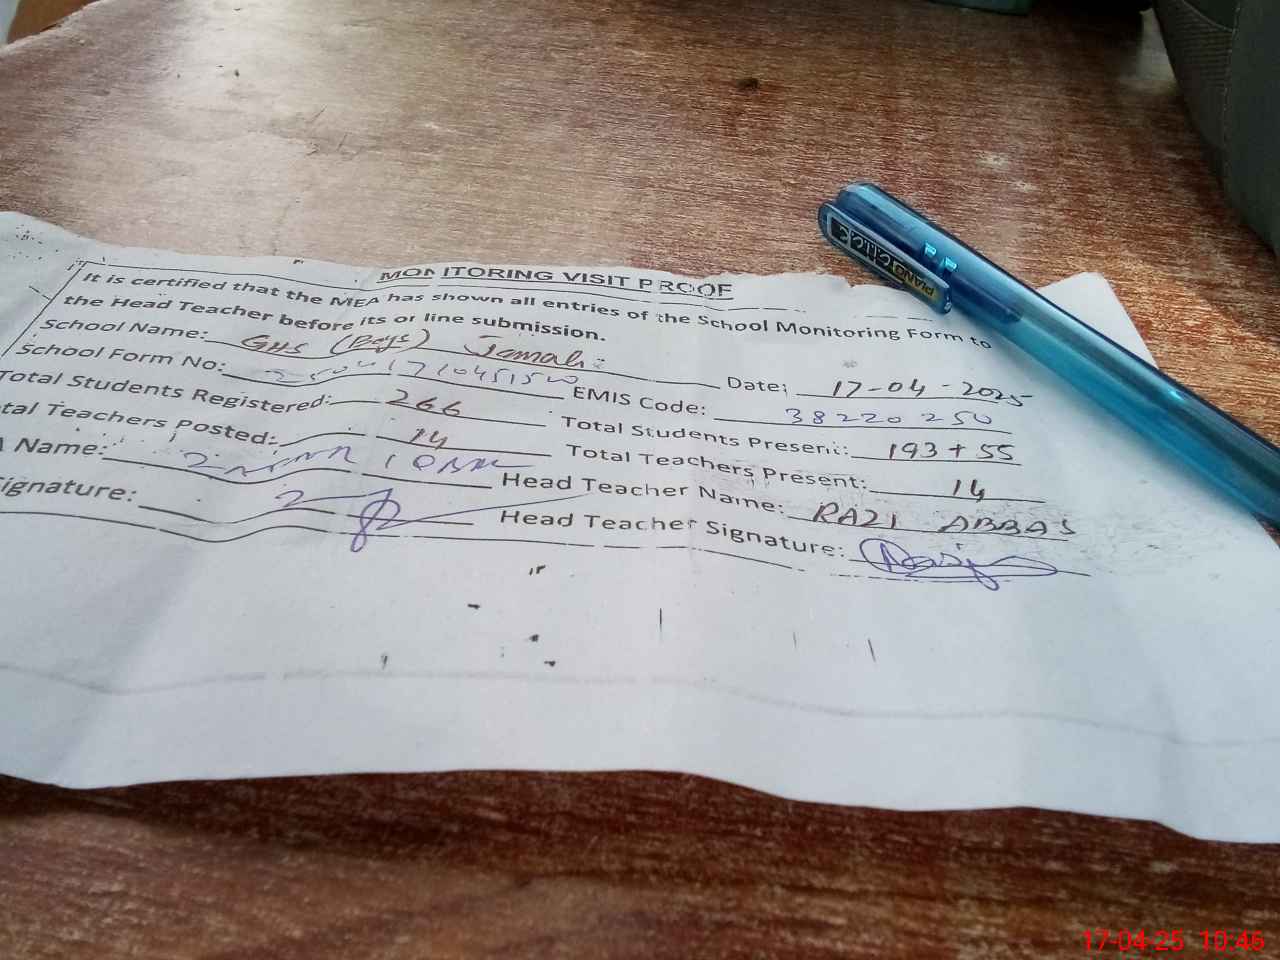 MONITORING VISIT PROOF
It is certified that the MEA has shown all entries of the School Monitoring Form to
the Head Teacher before its on line submission.
School Name: GHS (Boys) Jamali Date: 17-04-2025
School Form No: EMIS Code: 38220250
Total Students Registered: 266 Total Students Present: 193+55
tal Teachers Posted: 14 Total Teachers Present: 14
A Name: Head Teacher Name: RAZI ABBAS
ignature: Head Teacher Signature:
PIANO CLIC
17-04-25 10:46